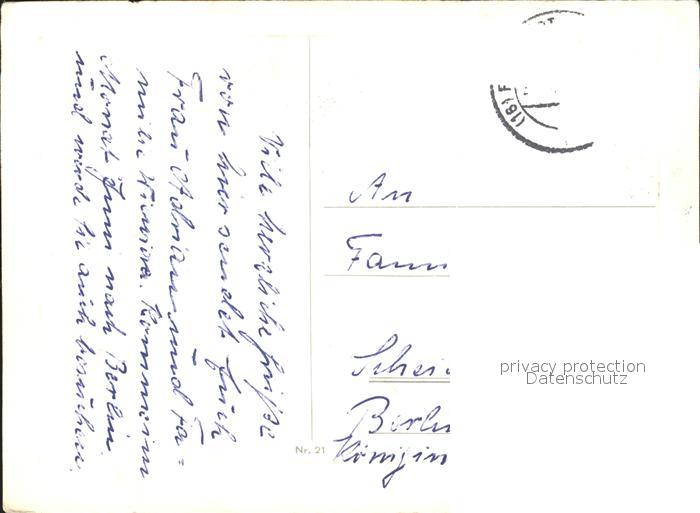 Viele herzliche Grüße
von hier sendet Euch
Frau Adrian und Fa=
milie Komme im
Monat Juni nach Berlin
und werde Sie auch besuchen.
An
Fami
Schei
Berlin
Königin
Nr. 21
(16) F
privacy protection
Datenschutz